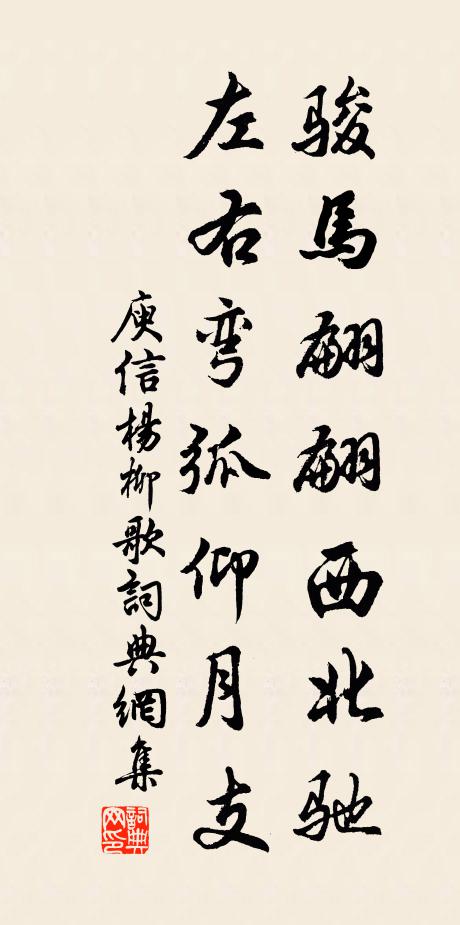 骏馬翩翩西北驰
左右弯弧仰月支
庾信楊柳歌詞典網集
詞典網印